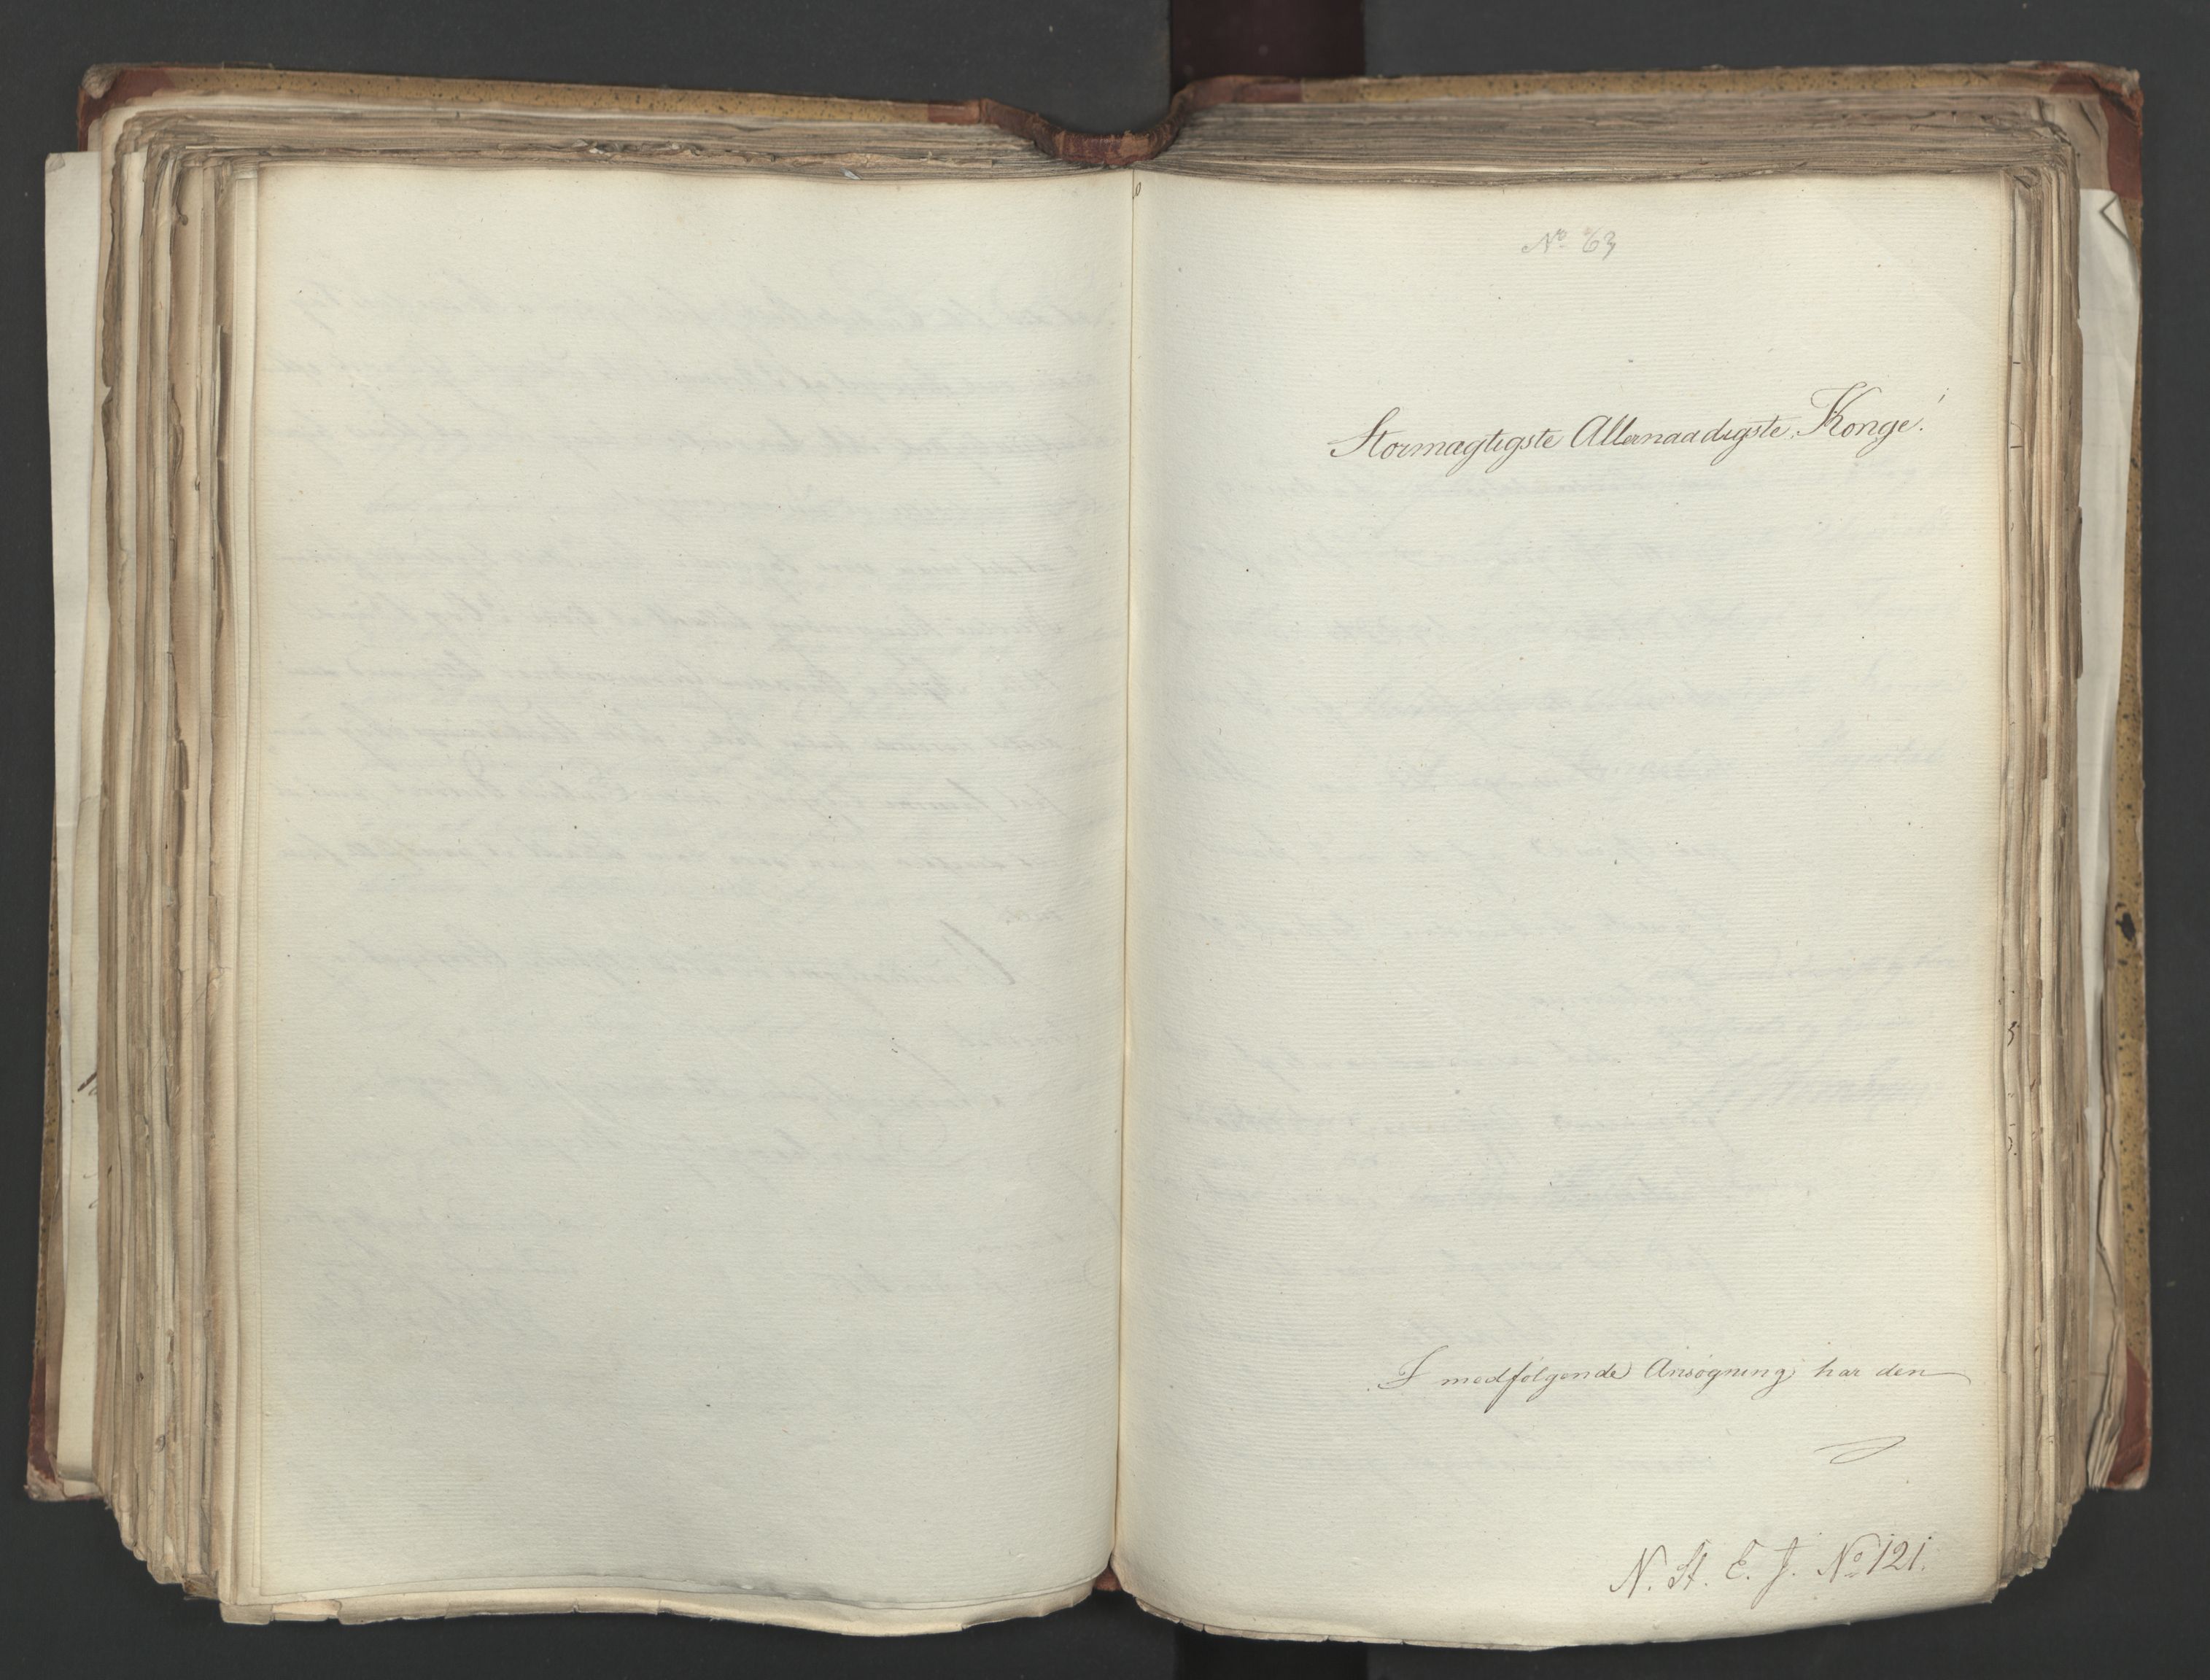 No 63
Stormægtigste Allernaadigste Konge!
I medfølgende Ansøgning har den
N. St. E. J. No 121.